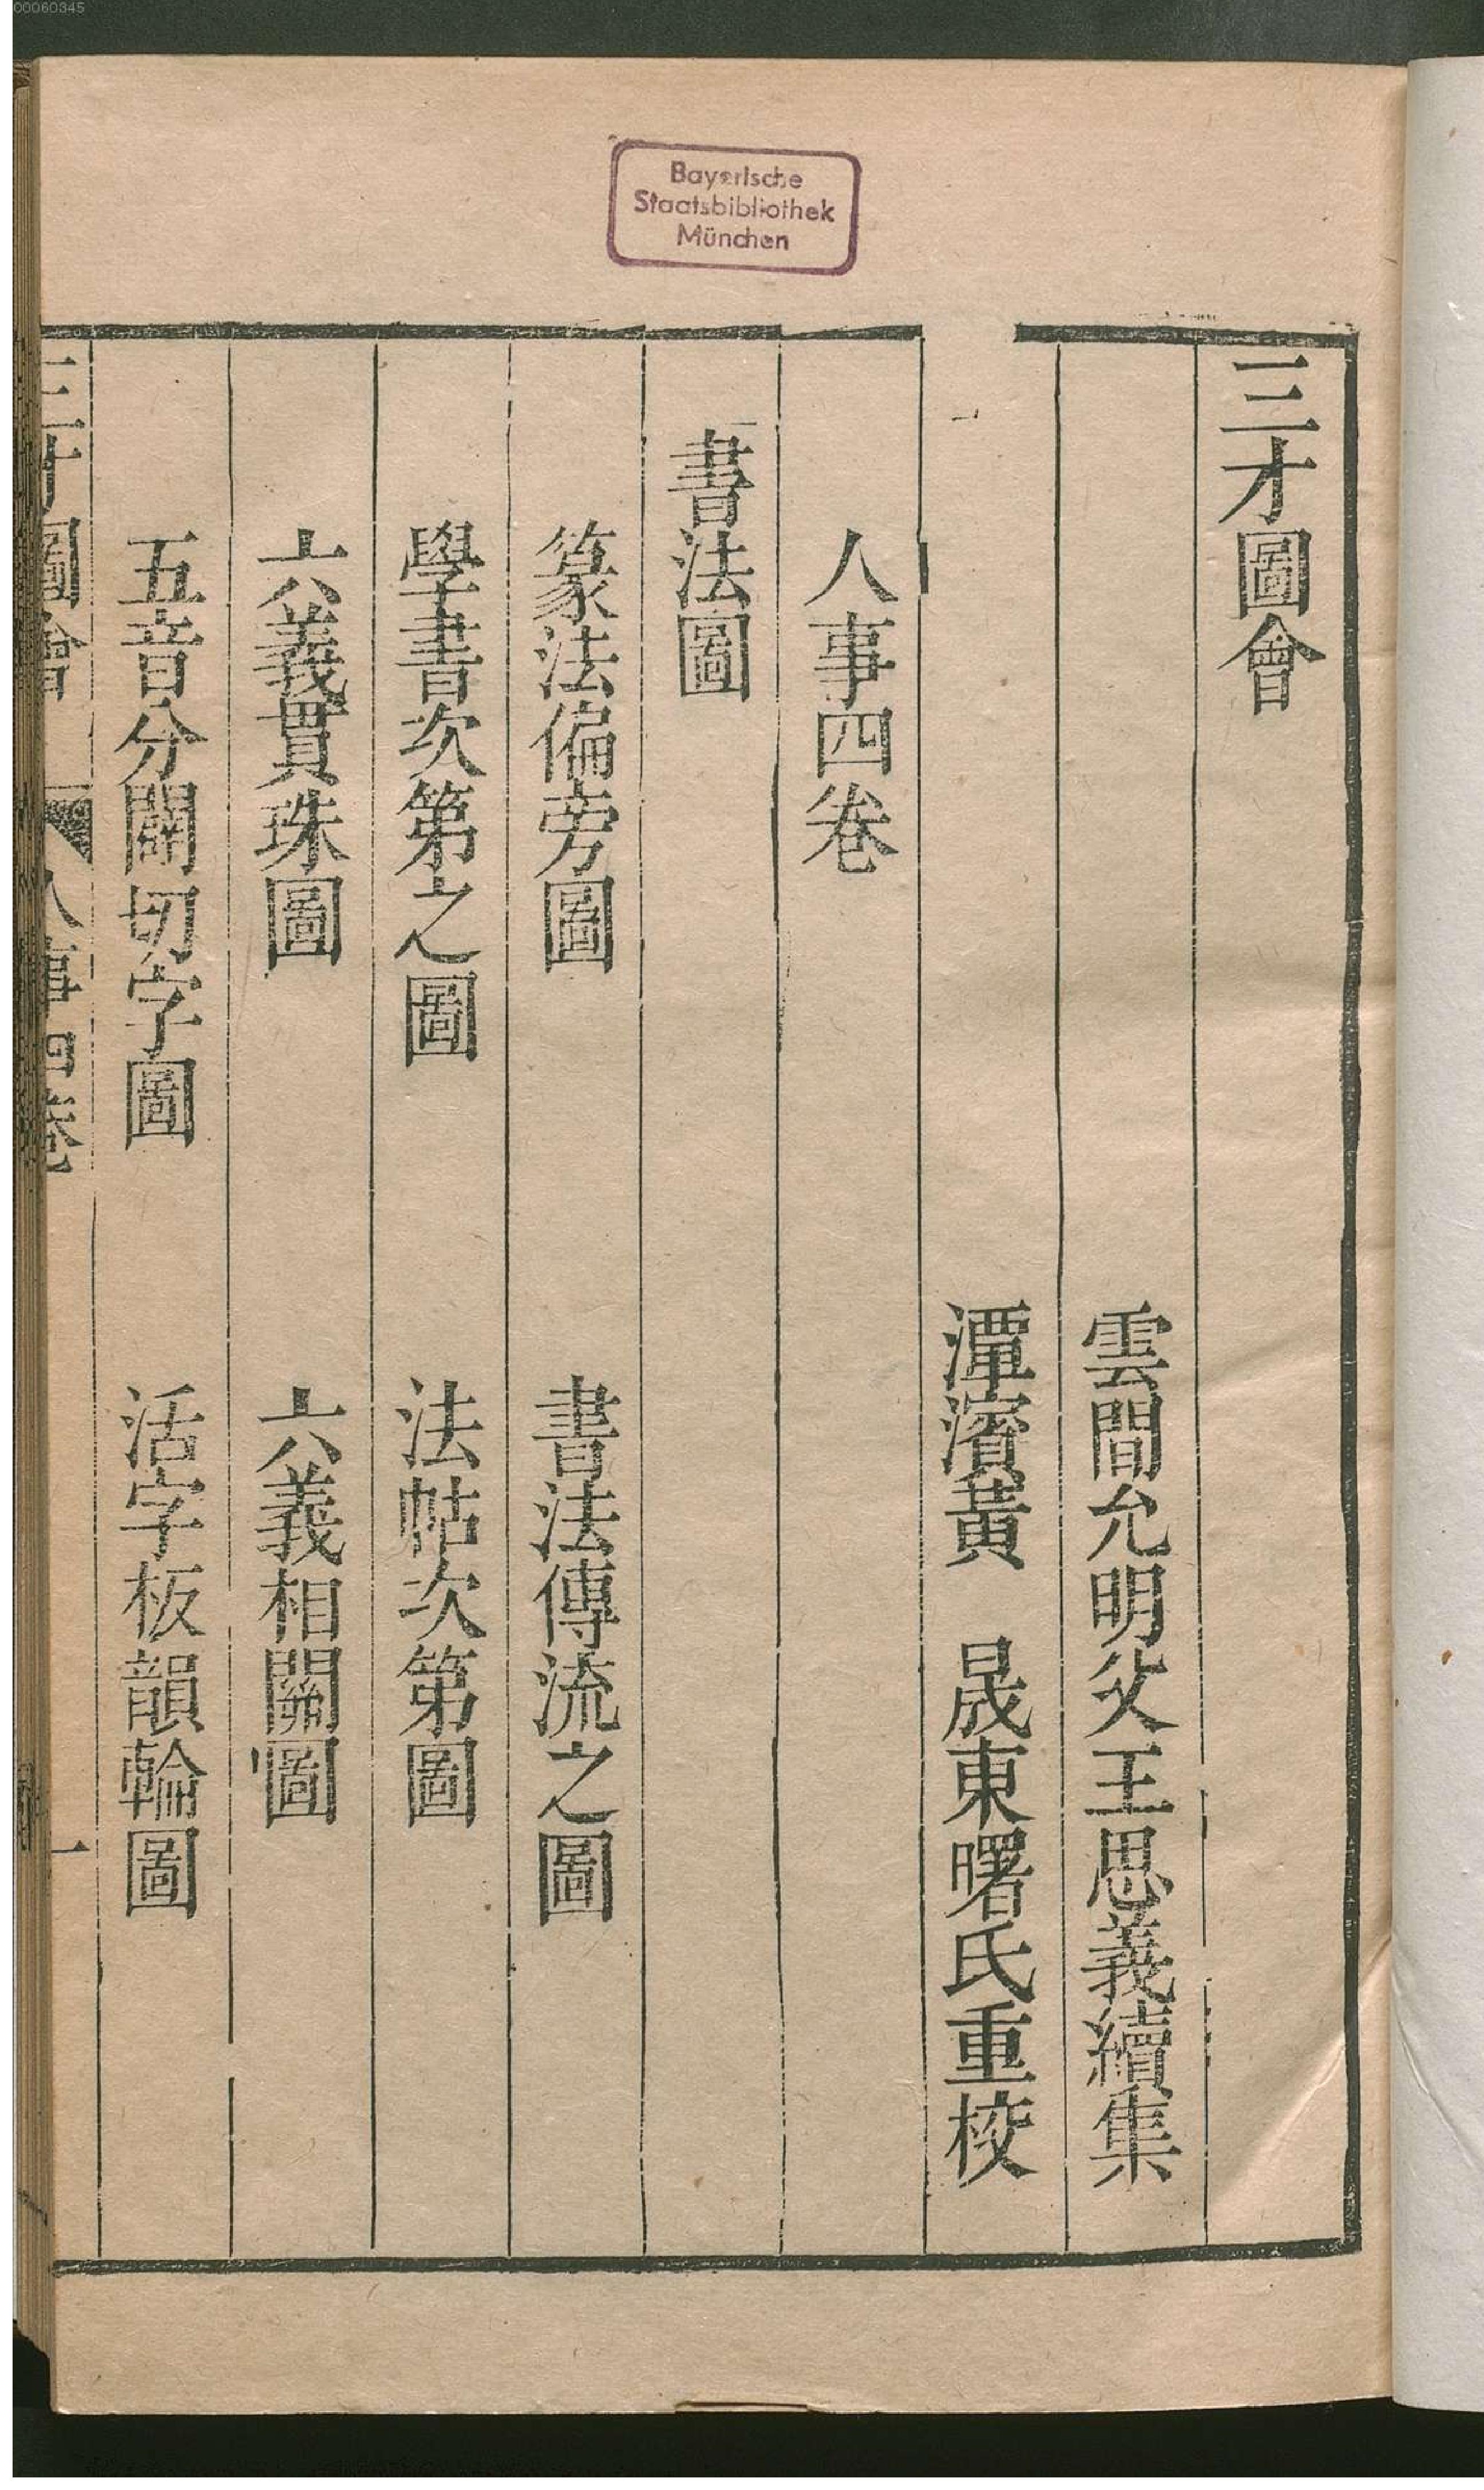 00060345
Bayerische
Staatsbibliothek
München
三才圖會
雲間允明父王思義續集
潭濱黃 晟東曙氏重校
人事四卷
書法圖
篆法偏旁圖 書法傳流之圖
學書次第之圖 法帖次第圖
六義貫珠圖 六義相關圖
五音分闢切字圖 活字板韻輪圖
三才圖會 人事四卷 一